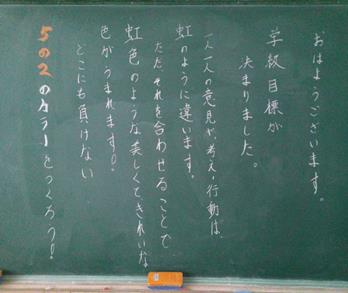 おはようございます。
学級目標が
決まりました。
一人一人の意見や考え・行動は、
虹のように違います。
ただそれを合わせることで
虹色のような美しくてきれいな
色がうまれます!
どこにも負けない
5の2のカラーをつくろう!